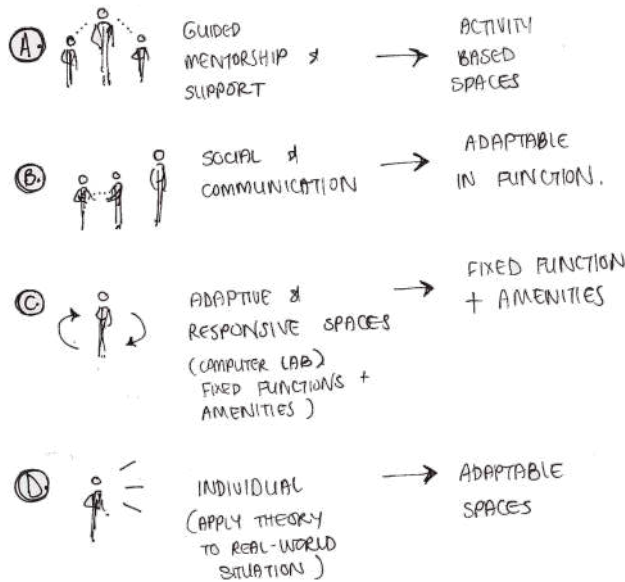 A.
GUIDED
MENTORSHIP &
SUPPORT
ACTIVITY
BASED
SPACES
B.
SOCIAL &
COMMUNICATION
ADAPTABLE
IN FUNCTION.
C
ADAPTIVE &
RESPONSIVE SPACES
(COMPUTER LAB)
FIXED FUNCTIONS +
AMENITIES)
FIXED FUNCTION
+ AMENITIES
D
INDIVIDUAL
(APPLY THEORY
TO REAL-WORLD
SITUATION)
ADAPTABLE
SPACES